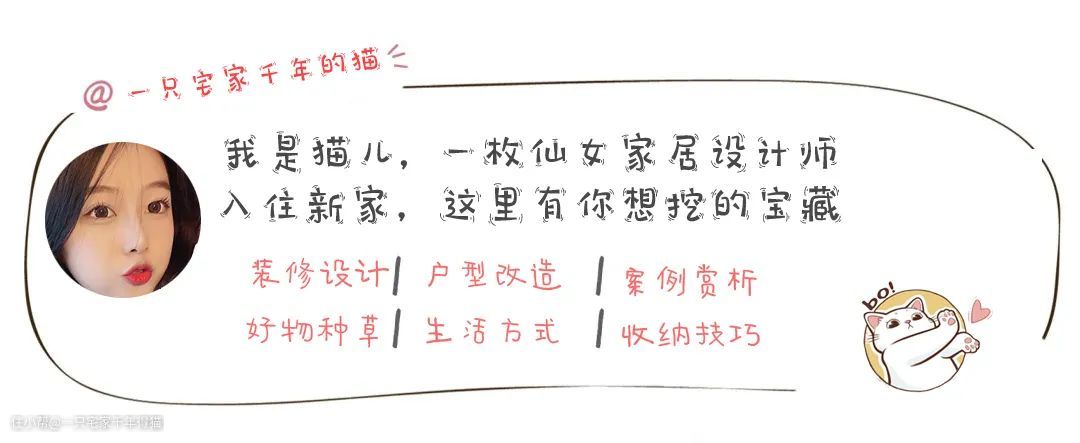 @一只宅家千年的猫
我是猫儿，一枚仙女家居设计师
入住新家，这里有你想挖的宝藏
装修设计 | 户型改造 | 案例赏析
好物种草 | 生活方式 | 收纳技巧
bo!
住小帮@一只宅家千年的猫